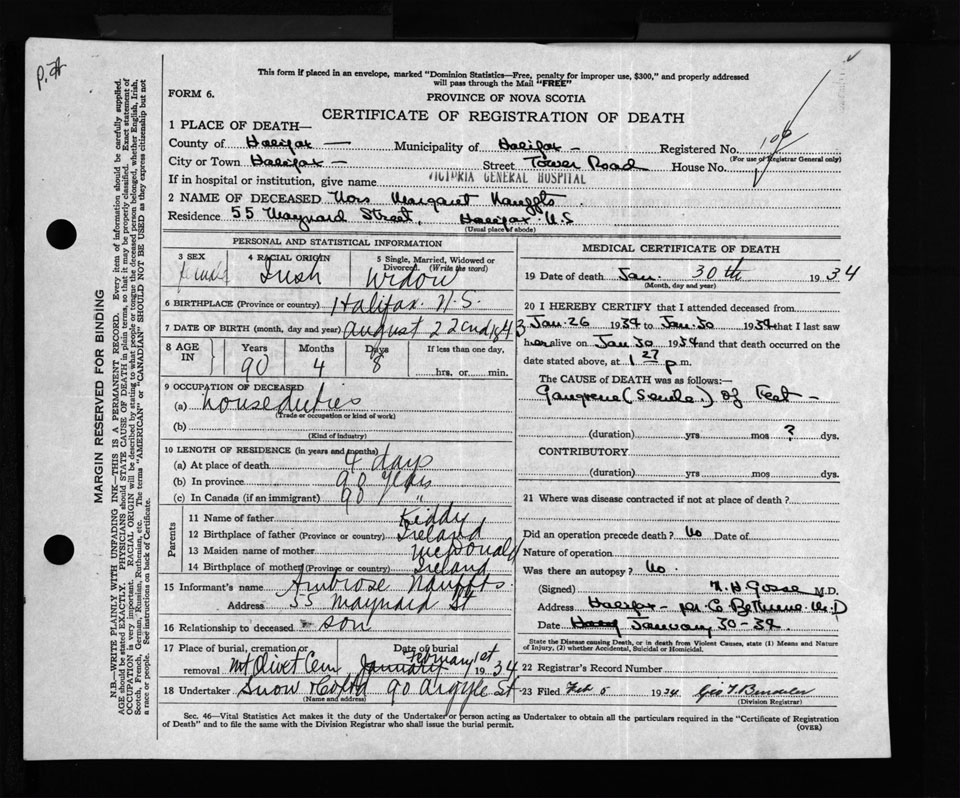 P.
This form if placed in an envelope, marked "Dominion Statistics—Free, penalty for improper use, $300," and properly addressed
will pass through the Mail "FREE"
FORM 6.
PROVINCE OF NOVA SCOTIA
CERTIFICATE OF REGISTRATION OF DEATH
1 PLACE OF DEATH—
County of Halifax — Municipality of Halifax – Registered No.
(For use of Registrar General only)
City or Town Halifax – Street Tower Road House No.
If in hospital or institution, give name VICTORIA GENERAL HOSPITAL
2 NAME OF DECEASED Mrs Margaret Nauffts
Residence 55 Maynard Street, Halifax N.S
(Usual place of abode)
PERSONAL AND STATISTICAL INFORMATION
3 SEX 4 RACIAL ORIGIN 5 Single, Married, Widowed or
Divorced. (Write the word)
female Irish Widow
6 BIRTHPLACE (Province or country) Halifax. N.S.
7 DATE OF BIRTH (month, day and year) August 22nd 1843
8 AGE IN Years Months Days If less than one day,
90 4 8 hrs. or min.
9 OCCUPATION OF DECEASED
(a) house duties
(Trade or occupation or kind of work)
(b)
(Kind of industry)
10 LENGTH OF RESIDENCE (in years and months)
(a) At place of death 4 days
(b) In province 90 years
(c) In Canada (if an immigrant) 90 "
Parents
11 Name of father Kiddy
12 Birthplace of father (Province or country) Ireland
13 Maiden name of mother McDonald
14 Birthplace of mother (Province or country) Ireland
15 Informant's name Ambrose Nauffts.
Address 55 Maynard St
16 Relationship to deceased son
17 Place of burial, cremation or removal Date of burial
Mt Olivet Cem January February 1st 1934
18 Undertaker Snow & Co Ltd 90 Argyle St
(Name and address)
MEDICAL CERTIFICATE OF DEATH
19 Date of death Jan. 30th 1934
(Month, day and year)
20 I HEREBY CERTIFY that I attended deceased from
Jan. 26 1934 to Jan. 30 1934 that I last saw
her alive on Jan 30 1934 and that death occurred on the
date stated above, at 1 27 p m.
The CAUSE OF DEATH was as follows:—
Gangrene (Senile.) of Feet –
(duration) yrs mos ? dys.
CONTRIBUTORY
(duration) yrs mos dys.
21 Where was disease contracted if not at place of death?
Did an operation precede death? No Date of
Nature of operation
Was there an autopsy? No.
(Signed) N. H. Gosse M.D.
Address Halifax – per C. Bethune M.D
Date January 30-34
State the Disease causing Death, or in death from Violent Causes, state (1) Means and Nature
of Injury, (2) whether Accidental, Suicidal or Homicidal.
22 Registrar's Record Number
23 Filed Feb 5 1934
(Division Registrar)
Sec. 46—Vital Statistics Act makes it the duty of the Undertaker or person acting as Undertaker to obtain all the particulars required in the "Certificate of Registration
of Death" and to file the same with the Division Registrar who shall issue the burial permit.
(OVER)
MARGIN RESERVED FOR BINDING
N.B.—WRITE PLAINLY WITH UNFADING INK—THIS IS A PERMANENT RECORD. Every item of information should be carefully supplied.
AGE should be stated EXACTLY. PHYSICIANS should STATE CAUSE OF DEATH in plain terms, so that it may be properly classified. Exact statement of
OCCUPATION is very important. RACIAL ORIGIN will be described by stating to what people or tongue the deceased person belonged, whether English, Irish,
Scotch, French, German, Russian, Ruthenian, etc. The terms "AMERICAN" or "CANADIAN" SHOULD NOT BE USED as they express citizenship but not
a race or people. See instructions on back of Certificate.